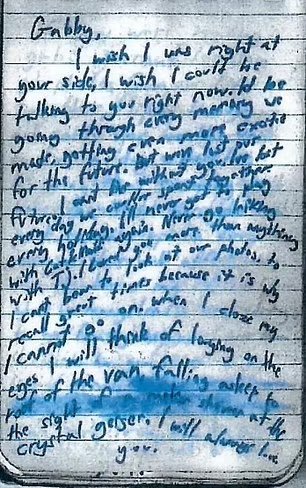 Gabby,
I wish I was right at
your side, I wish I could be
talking to you right now. I'd be
going through every memory we
made, getting even more excited
for the future. But we've lost our
future. I can't live without you. I've lost
every day we could've spent together.
every holiday. I'll never get to play
with again. Never go hiking
with TJ. I loved you more than anything
I can't bear to look at our photos, to
recall great times because it is why
I cannot go on. When I close my
eyes I will think of laughing on the
roof of the van, falling asleep to
the sight of a meteor shower at the
crystal geyser. I will always love
you.